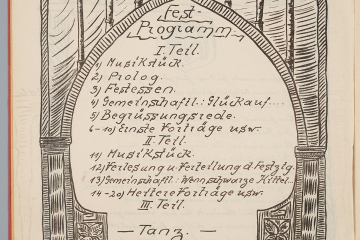 Fest-
Programm
I. Teil.
1) Musikstück.
2) Prolog.
3) Festessen.
4) Gemeinschaftl.: Glückauf....
5) Begrüssungsrede.
6-10) Einste Vorträge usw.
II. Teil.
11) Musikstück.
12) Verlesung u. Verteilung d. Festztg.
13) Gemeinschaftl: Wenn schwarze Kittel..
14-20) Heitere Vorträge usw.
III. Teil.
— Tanz. —